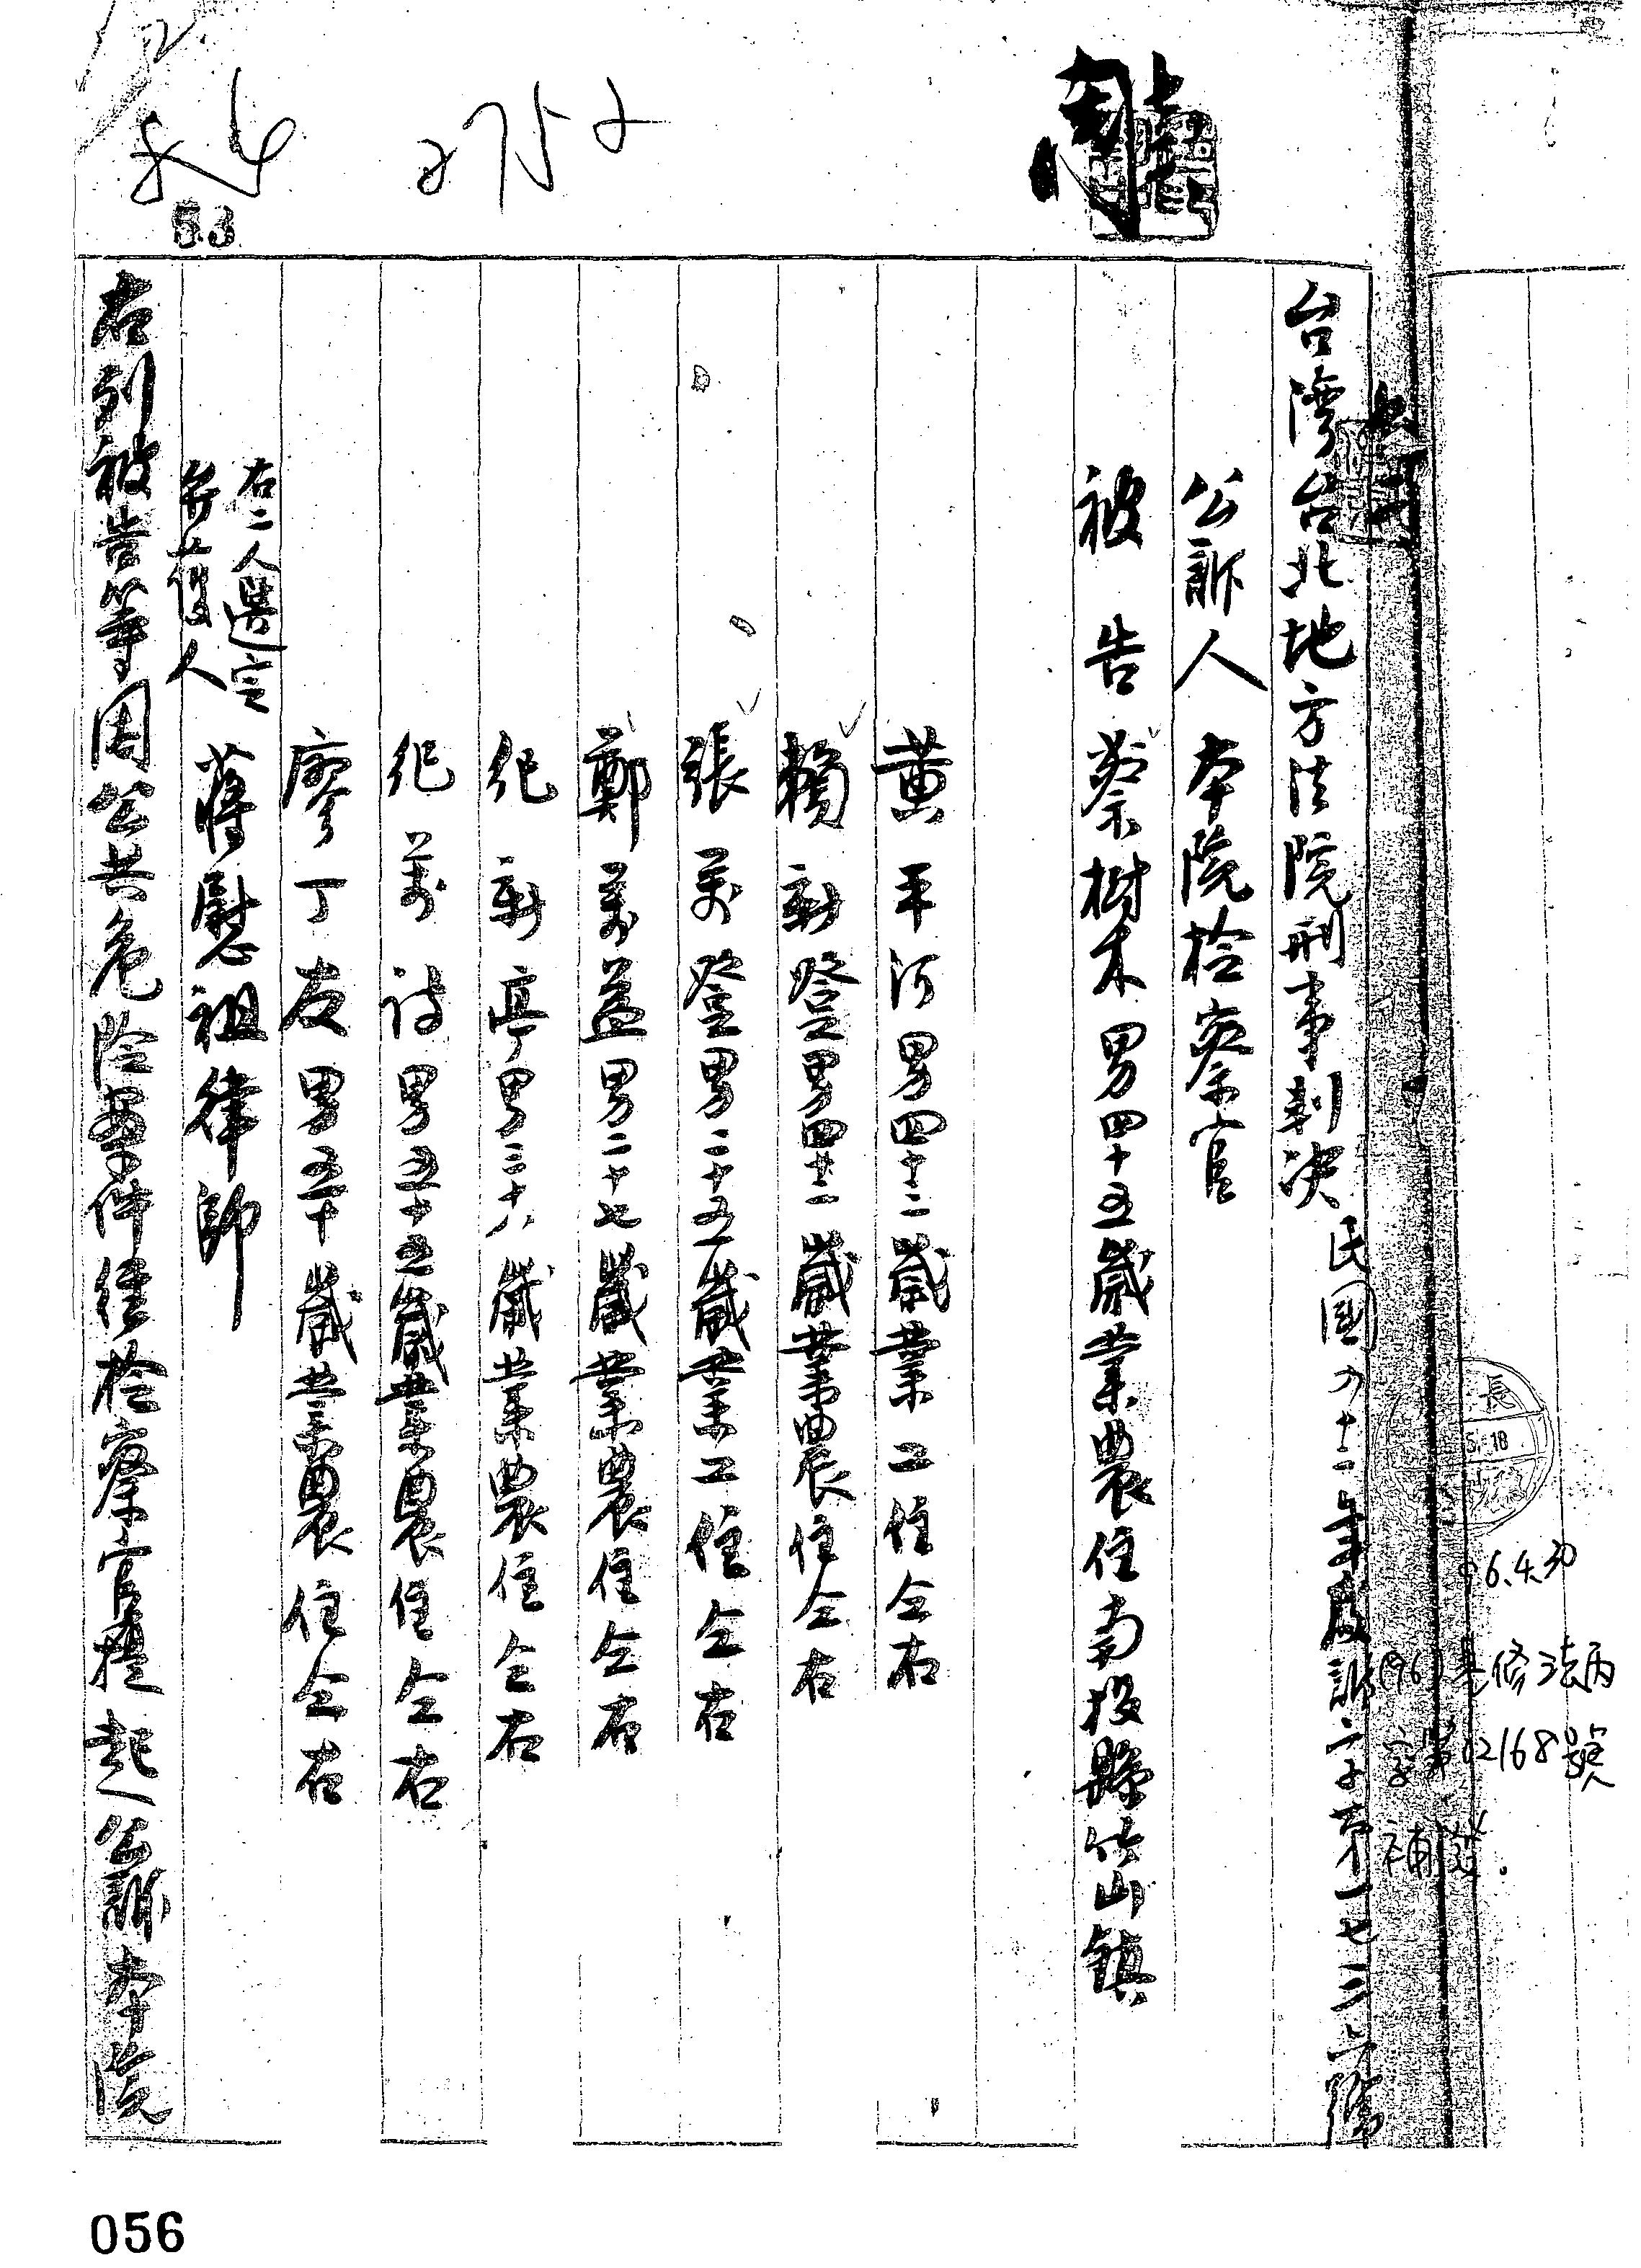 台灣台北地方法院刑事判決 民國四十一年度訴字第一七三六號
公訴人 本院檢察官
被告 蔡樹木 男四十五歲業農住南投縣竹山鎮
黃平河 男四十二歲業工住仝右
賴新登 男四十二歲業農住仝右
張萬登 男二十五歲業工住仝右
鄭萬益 男二十七歲業農住仝右
紀新亭 男三十八歲業農住仝右
紀萬詩 男五十五歲業農住仝右
廖丁友 男五十歲業農住仝右
右二人選定
弁護人 蔣慰祖律師
右列被告等因公共危險案件經檢察官提起公訴本院
2752
53
長
5.18
96.4.30
字第02168號
補送.
056